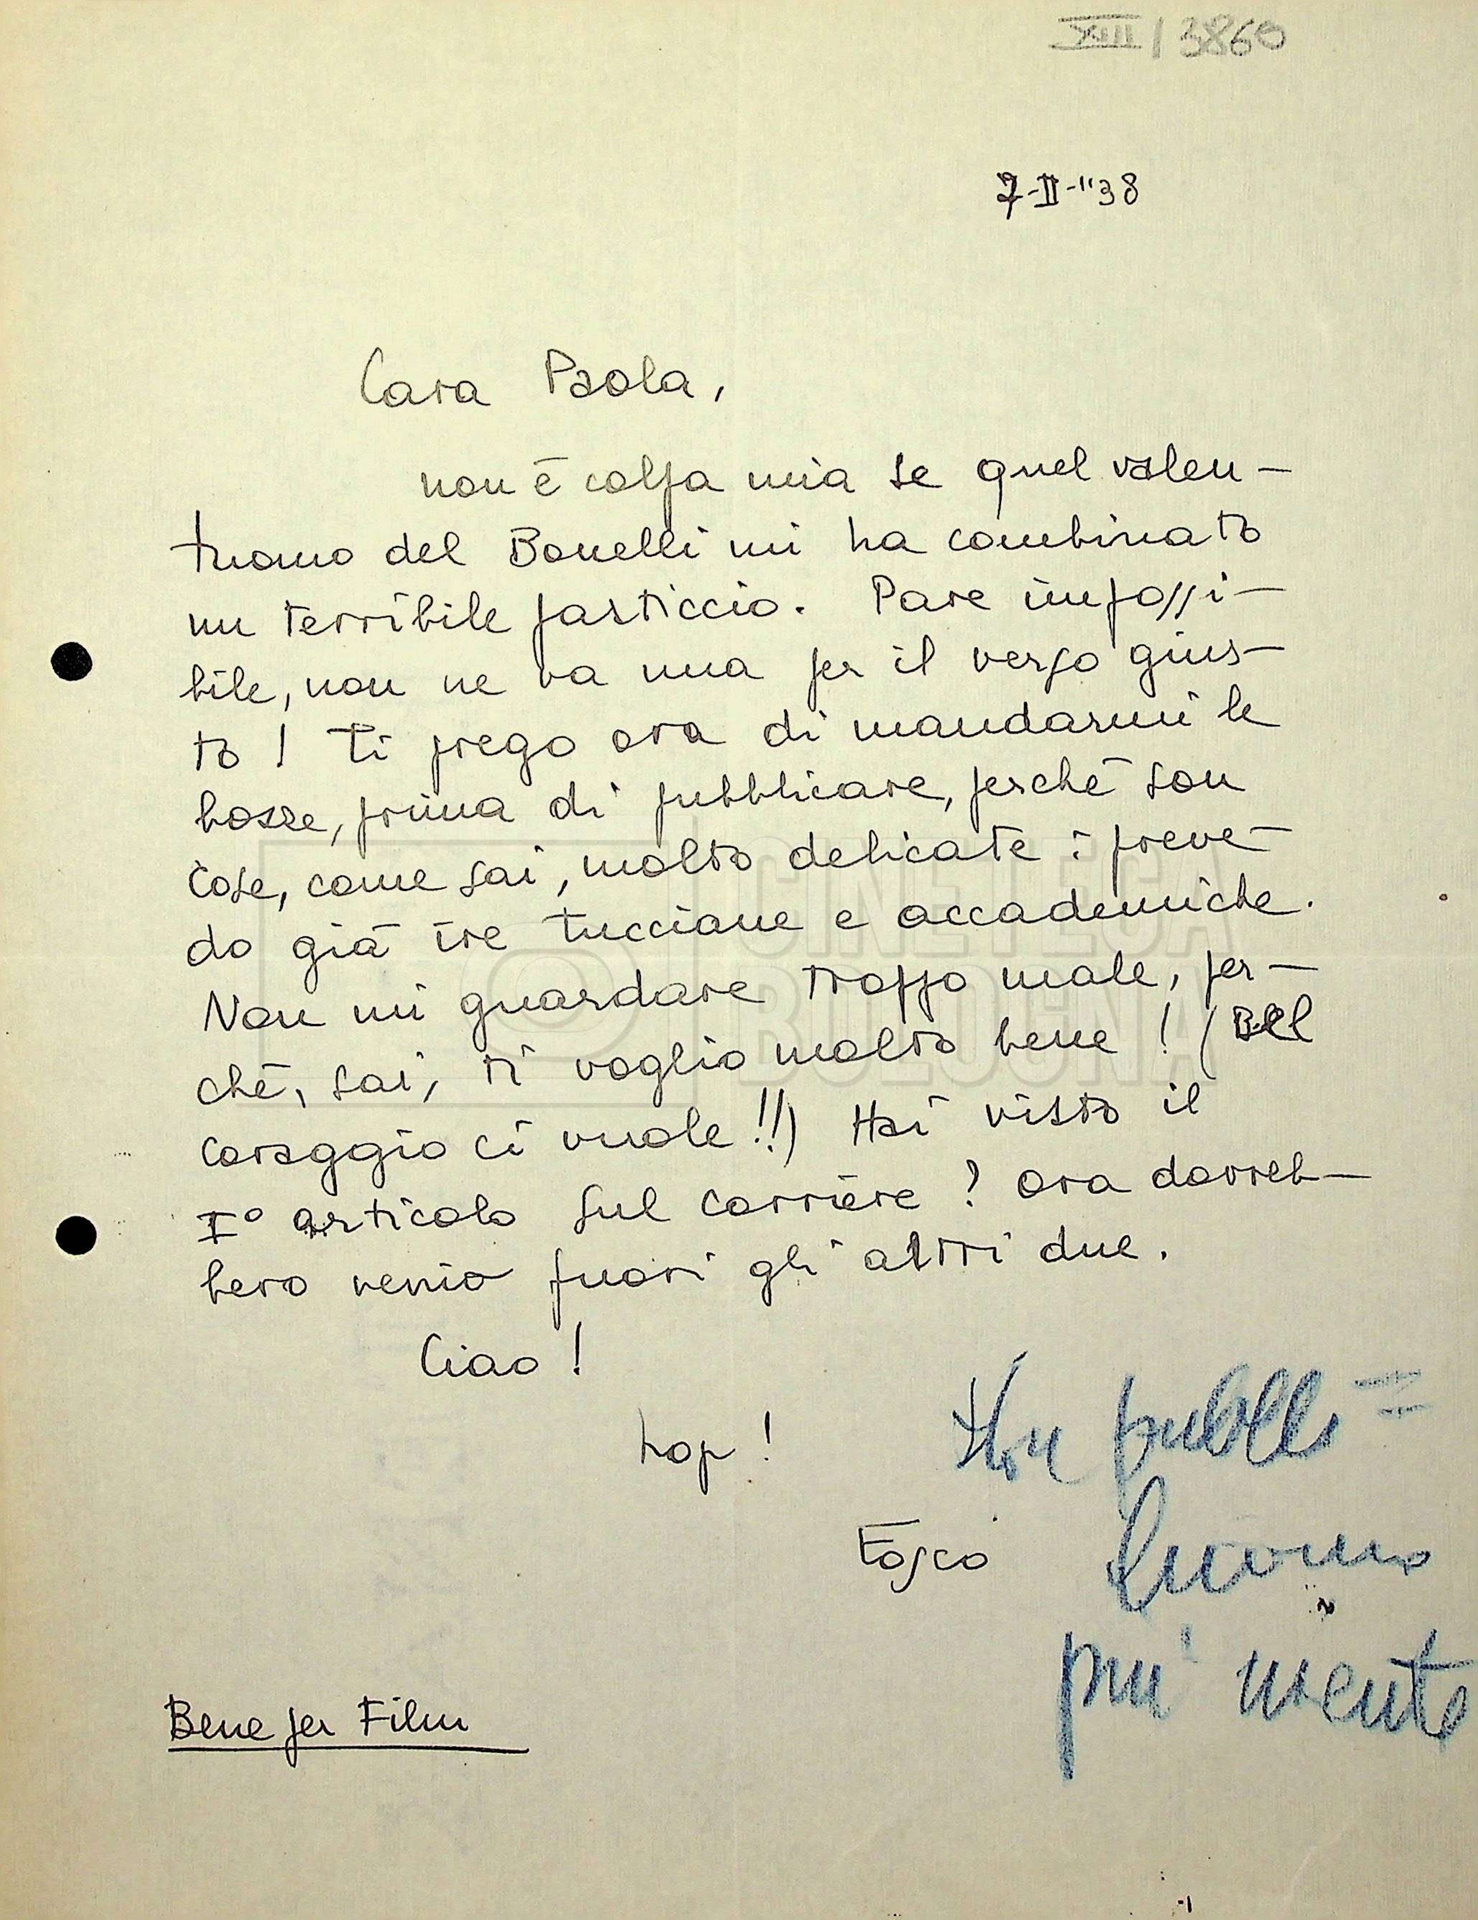 XIII / 3860
7-II-"38
Cara Paola,
non è colpa mia se quel valen-
tuomo del Bonelli mi ha combinato
un terribile pasticcio. Pare impossi-
bile, non ne va una per il verso gius-
to! Ti prego ora di mandarmi le
bozze, prima di pubblicare, perché son
cose, come sai, molto delicate: preve-
do già ire tucciane e accademiche.
Non mi guardare troppo male, per-
ché, sai, ti voglio molto bene! (Bel
coraggio ci vuole!!) Hai visto il
I° articolo sul Corriere? Ora dovreb-
bero venir fuori gli altri due.
Ciao!
hop!
Fosco
Non pubbli=
chiamo
più niente
Bene per Film
CINETECA
BOLOGNA